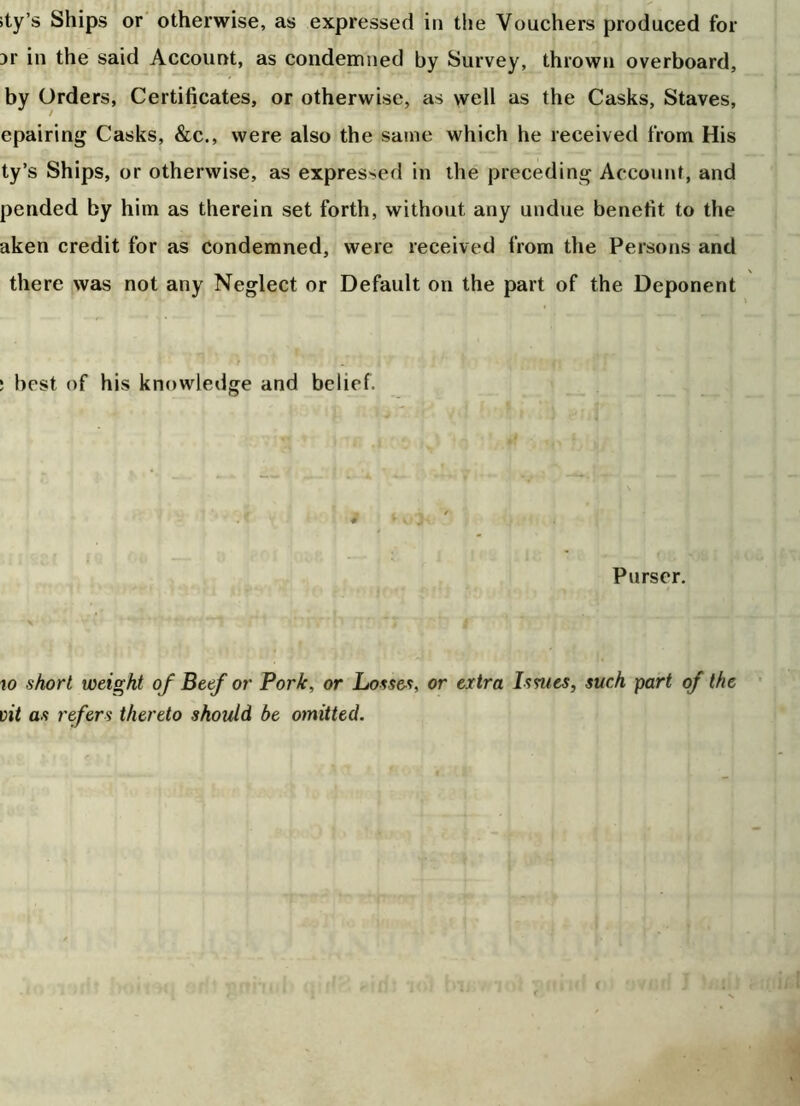 ty's Ships or otherwise, as expressed in the Vouchers produced for
or in the said Account, as condemned by Survey, thrown overboard,
by Orders, Certificates, or otherwise, as well as the Casks, Staves,
epairing Casks, &c., were also the same which he received from His
ty's Ships, or otherwise, as expressed in the preceding Account, and
pended by him as therein set forth, without any undue benefit to the
aken credit for as condemned, were received from the Persons and
there was not any Neglect or Default on the part of the Deponent
best of his knowledge and belief.
Purser.
no short weight of Beef or Pork, or Losses, or extra Issues, such part of the
vit as refers thereto should be omitted.